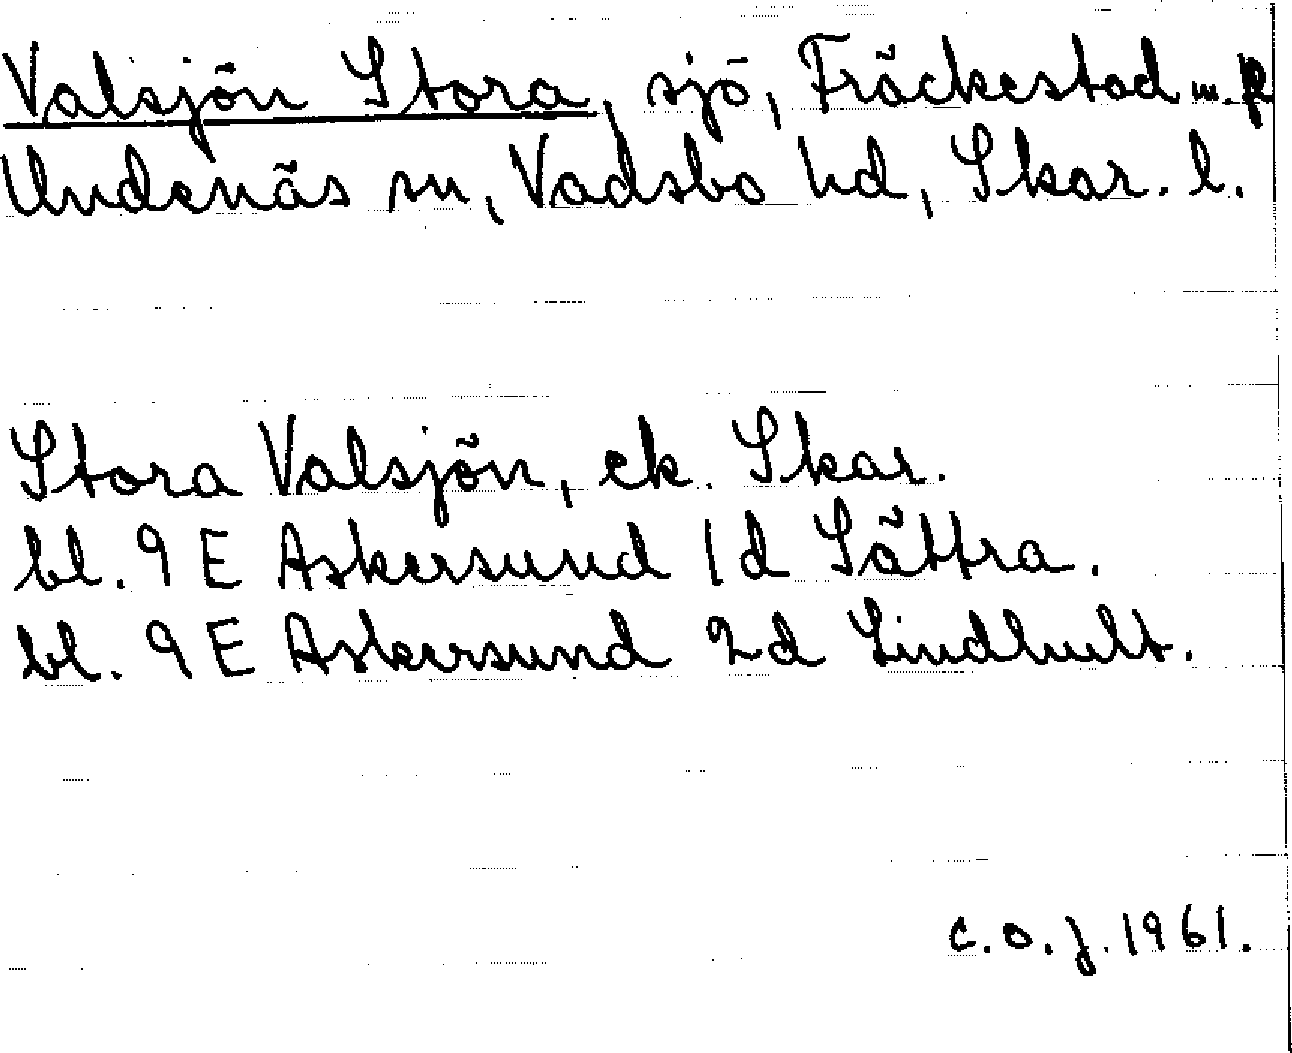 Valsjön Stora, sjö, Fräckestad m. fl.
Undenäs sn, Vadsbo hd, Skar. l.
Stora Valsjön, ek. Skar.
bl. 9 E Askersund 1d Sättra.
bl. 9 E Askersund 2d Lindhult.
C.O.J. 1961.